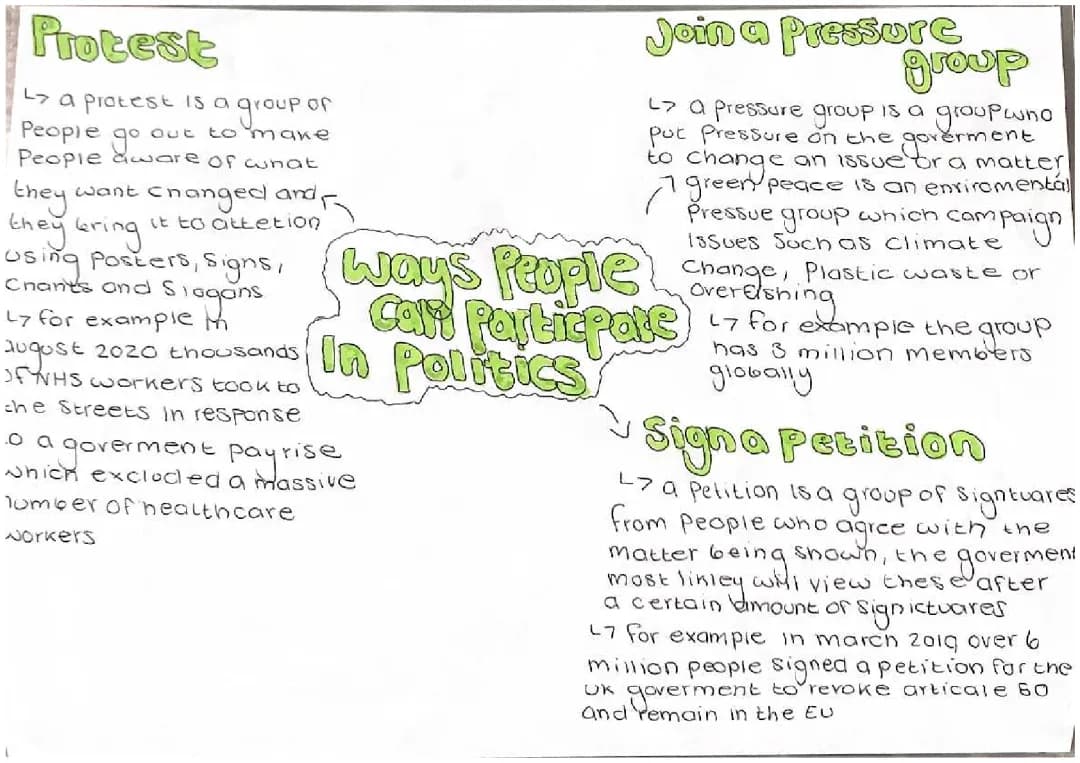 Protest
↳ a protest is a group of
People go out to make
People aware of what
they want changed and
they bring it to attetion
using posters, signs,
Chants and Slogans
↳ for example in
august 2020 thousands
of NHS workers took to
the streets in response
to a goverment payrise
which excluded a massive
number of healthcare
workers
Ways People
Can Particpate
In Politics
Join a Pressure
group
↳ a pressure group is a group who
put Pressure on the goverment
to change an issue or a matter
green peace is an enviromental
Pressue group which campaign
issues Such as Climate
Change, Plastic waste or
overfishing
↳ for example the group
has 3 million members
globally
Sign a Petition
↳ a Petition is a group of signtuares
from people who agree with the
matter being shown, the goverment
most linley will view these after
a certain amount of signictuares
↳ for example in march 2019 over 6
million people signed a petition for the
UK goverment to revoke articale 50
and remain in the EU